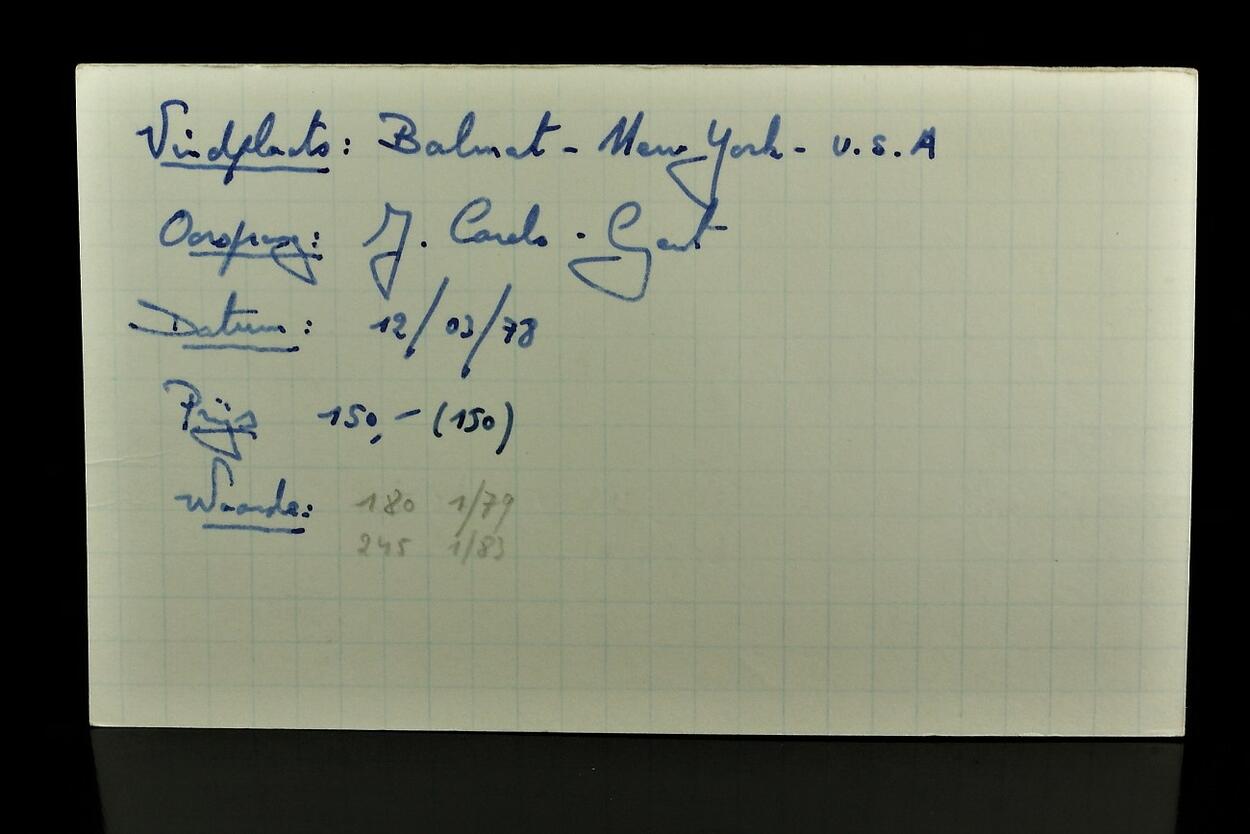 Vindplaats: Balmat - New York - U.S.A
Oorsprong: J. Carels - Gent
Datum: 12/03/78
Prijs 150,- (150)
Waarde: 180 1/79
245 1/83